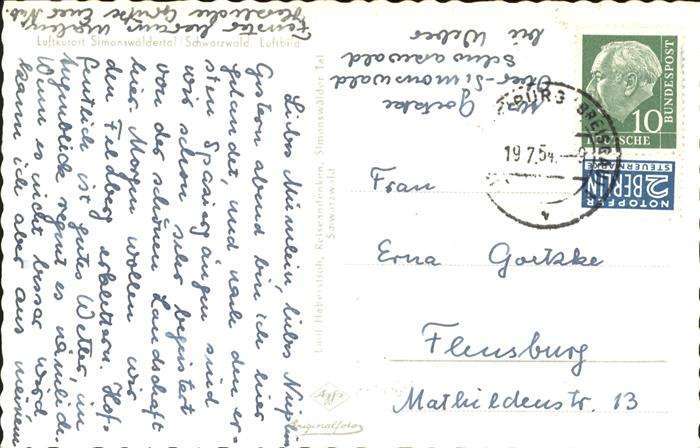 Luftkurort Simonswäldertal Schwarzwald. Luftbild
Liebes Mümlein, liebs Nuppi
Gestern abend bin ich hier
gelandet, und nach den er-
sten Spaziergängen sind
wir schon sehr begeistert
von der schönen Landschaft
hier. Morgen wollen wir
den Feldberg erklettern. Hof-
fentlich ist gutes Wetter, im
Augenblick regnet es nämlich.
Wenn es nicht besser wird
kann ich aber aus meinem
Fenster heraus
Herzliche Grüße Euer
Simonswälder Tal
Schwarzwald
Originalfoto
Goetzke
Ober-Simonswald
Schwarzwald
bei Weber
DEUTSCHE BUNDESPOST
10
NOTOPFER
2 BERLIN
STEUERMARKE
19.7.54
Frau
Erna Goetzke
Flensburg
Mathildenstr. 13